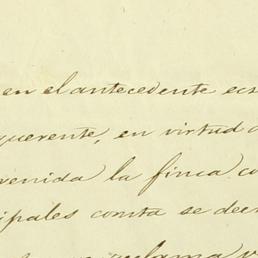 en el antecedente esc
querente, en virtud
venida la finca co
ipales consta se dec
reclama